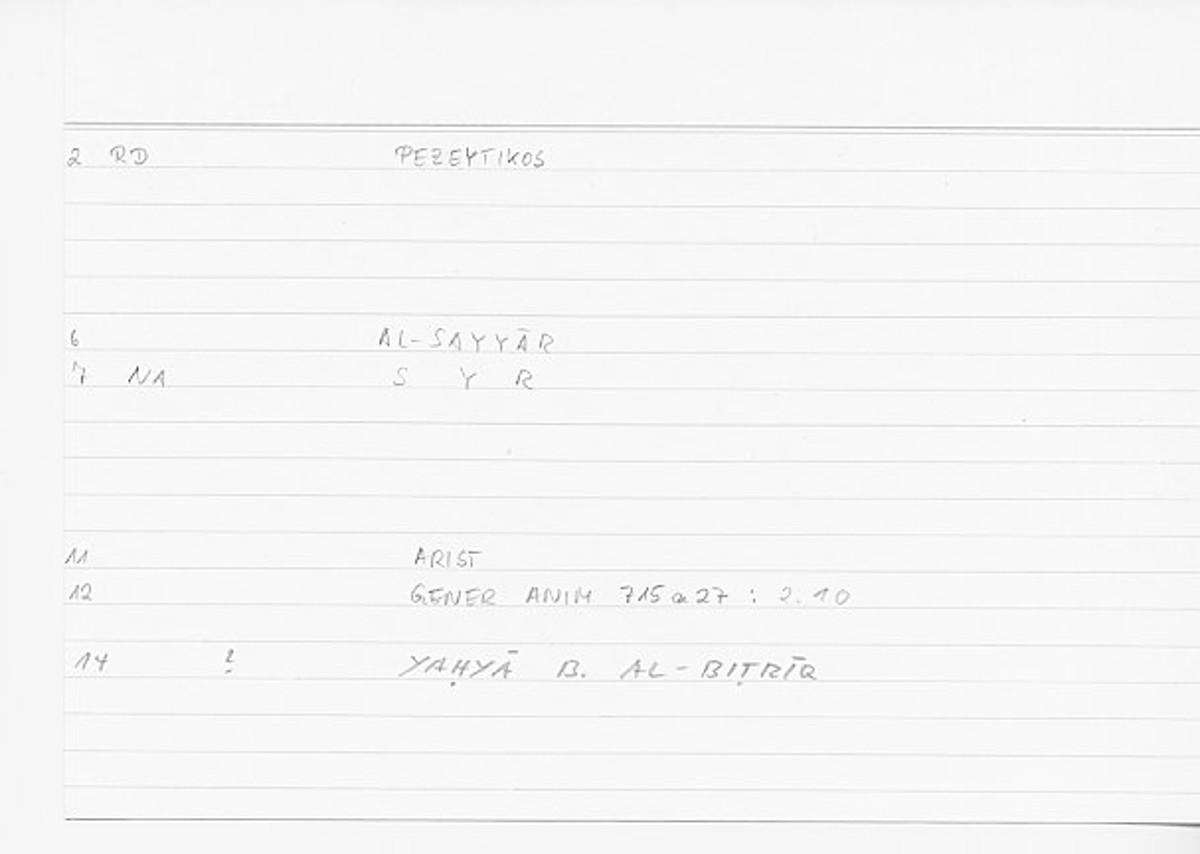 2 RD PEZEYTIKOS
6 AL-SAYYĀR
7 NA S Y R
11 ARIST
12 GENER ANIM 715a27 : 2.10
14 ? YAḤYĀ B. AL-BIṬRĪQ